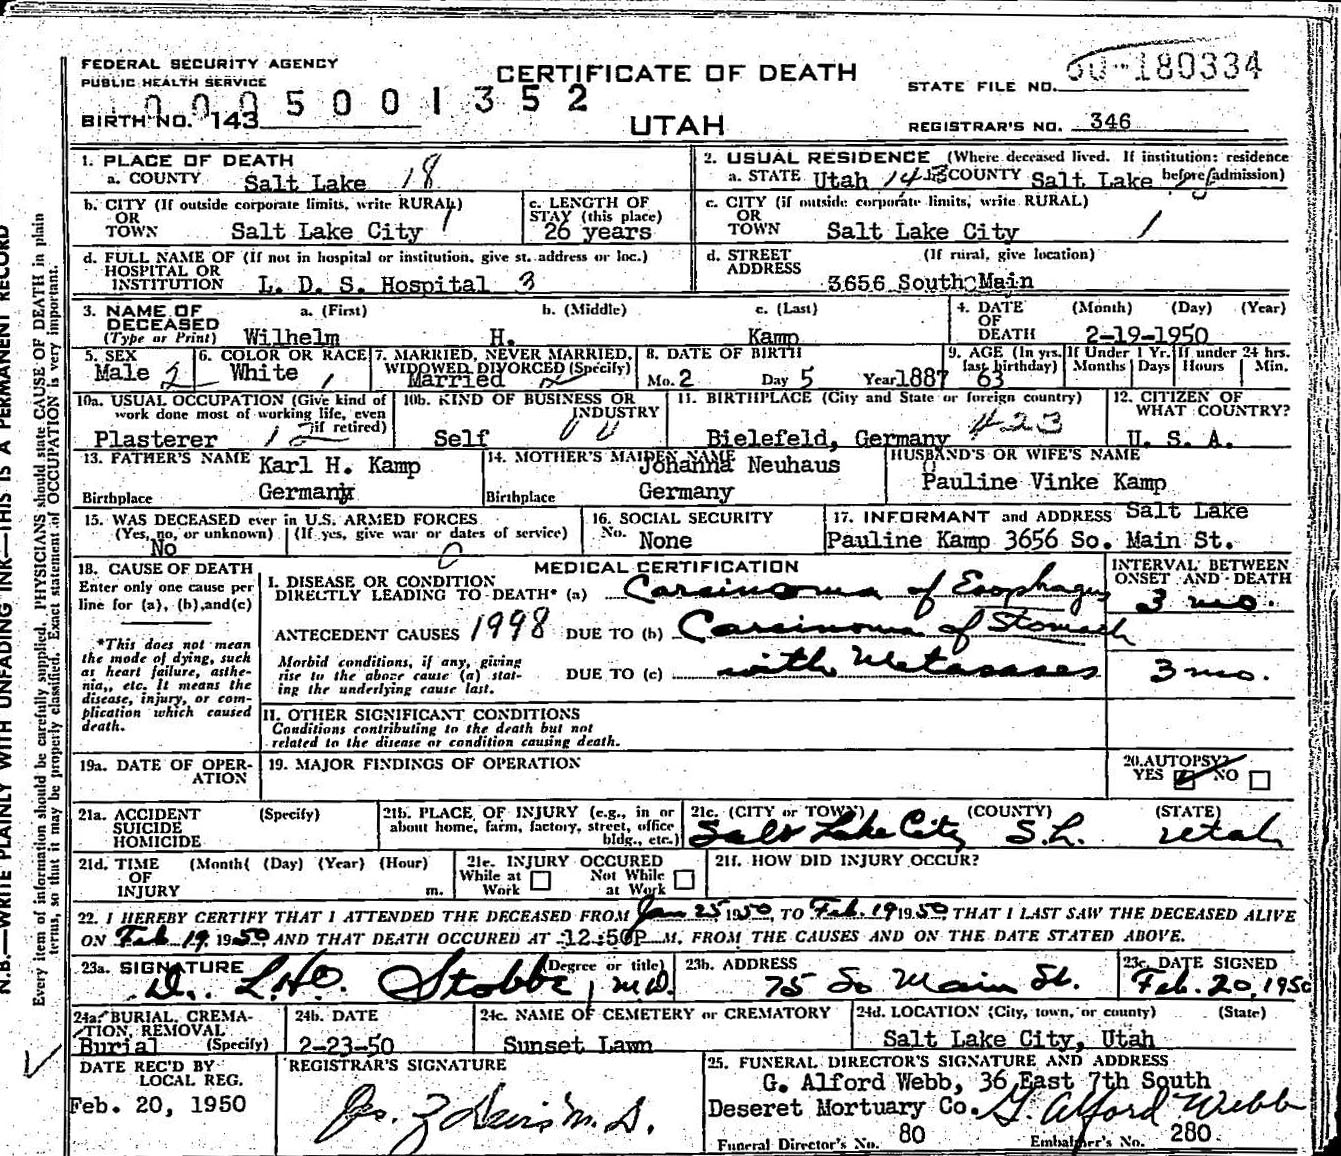 FEDERAL SECURITY AGENCY
PUBLIC HEALTH SERVICE
CERTIFICATE OF DEATH
UTAH
STATE FILE NO. 180334
0005001352
BIRTH NO. 143
REGISTRAR'S NO. 346
1. PLACE OF DEATH
a. COUNTY Salt Lake 18
2. USUAL RESIDENCE (Where deceased lived. If institution: residence before admission)
a. STATE Utah b. COUNTY Salt Lake
b. CITY (If outside corporate limits, write RURAL)
OR
TOWN Salt Lake City 1
c. LENGTH OF
STAY (this place)
26 years
c. CITY (if outside corporate limits, write RURAL)
OR
TOWN Salt Lake City 1
d. FULL NAME OF (If not in hospital or institution, give st. address or loc.)
HOSPITAL OR
INSTITUTION L. D. S. Hospital 3
d. STREET (If rural, give location)
ADDRESS
3656 South Main
3. NAME OF a. (First) b. (Middle) c. (Last)
DECEASED
(Type or Print) Wilhelm H. Kamp
4. DATE (Month) (Day) (Year)
OF
DEATH 2-19-1950
5. SEX
Male 2
6. COLOR OR RACE
White 1
7. MARRIED, NEVER MARRIED,
WIDOWED DIVORCED (Specify)
Married 2
8. DATE OF BIRTH
Mo. 2 Day 5 Year 1887
9. AGE (In yrs. last birthday)
63
If Under 1 Yr.
Months Days
If under 24 hrs.
Hours Min.
10a. USUAL OCCUPATION (Give kind of
work done most of working life, even
if retired)
Plasterer 12
10b. KIND OF BUSINESS OR
INDUSTRY
Self
11. BIRTHPLACE (City and State or foreign country)
Bielefeld, Germany 423
12. CITIZEN OF
WHAT COUNTRY?
U. S. A.
13. FATHER'S NAME Karl H. Kamp
Birthplace Germany
14. MOTHER'S MAIDEN NAME
Johanna Neuhaus
Birthplace Germany
HUSBAND'S OR WIFE'S NAME
Pauline Vinke Kamp
15. WAS DECEASED ever in U.S. ARMED FORCES
(Yes, no, or unknown) (If yes, give war or dates of service)
No 0
16. SOCIAL SECURITY
No. None
17. INFORMANT and ADDRESS Salt Lake
Pauline Kamp 3656 So. Main St.
18. CAUSE OF DEATH
Enter only one cause per
line for (a), (b), and (c)
*This does not mean
the mode of dying, such
as heart failure, asthe-
nia,, etc. It means the
disease, injury, or com-
plication which caused
death.
MEDICAL CERTIFICATION
INTERVAL BETWEEN
ONSET AND DEATH
I. DISEASE OR CONDITION
DIRECTLY LEADING TO DEATH* (a) Carcinoma of Esophagus 3 mo.
ANTECEDENT CAUSES 1998 DUE TO (b) Carcinoma of Stomach
Morbid conditions, if any, giving
rise to the above cause (a) stat-
ing the underlying cause last.
DUE TO (c) with Metasases 3 mo.
II. OTHER SIGNIFICANT CONDITIONS
Conditions contributing to the death but not
related to the disease or condition causing death.
19a. DATE OF OPER-
ATION
19. MAJOR FINDINGS OF OPERATION
20. AUTOPSY?
YES NO
21a. ACCIDENT (Specify)
SUICIDE
HOMICIDE
21b. PLACE OF INJURY (e.g., in or
about home, farm, factory, street, office
bldg., etc.)
21c. (CITY or TOWN) (COUNTY) (STATE)
Salt Lake City S.L. Utah
21d. TIME (Month( (Day) (Year) (Hour)
OF
INJURY m.
21e. INJURY OCCURED
While at Work Not While at Work
21f. HOW DID INJURY OCCUR?
22. I HEREBY CERTIFY THAT I ATTENDED THE DECEASED FROM Jan 25 1950, TO Feb. 19 1950, THAT I LAST SAW THE DECEASED ALIVE
ON Feb 19 1950 AND THAT DEATH OCCURED AT 12:50P M. FROM THE CAUSES AND ON THE DATE STATED ABOVE.
23a. SIGNATURE (Degree or title)
Stobbe, M.D.
23b. ADDRESS
75 So Main St.
23c. DATE SIGNED
Feb. 20, 1950
24a. BURIAL, CREMA-
TION, REMOVAL
Burial (Specify)
24b. DATE
2-23-50
24c. NAME OF CEMETERY or CREMATORY
Sunset Lawn
24d. LOCATION (City, town, or county) (State)
Salt Lake City, Utah
DATE REC'D BY
LOCAL REG.
Feb. 20, 1950
REGISTRAR'S SIGNATURE
25. FUNERAL DIRECTOR'S SIGNATURE AND ADDRESS
G. Alford Webb, 36 East 7th South
Deseret Mortuary Co. G. Alford Webb
Funeral Director's No. 80 Embalmer's No. 280
N.B.—WRITE PLAINLY WITH UNFADING INK—THIS IS A PERMANENT RECORD
Every item of information should be carefully supplied. PHYSICIANS should state CAUSE OF DEATH in plain
terms, so that it may be properly classified. Exact statement of OCCUPATION is very important.